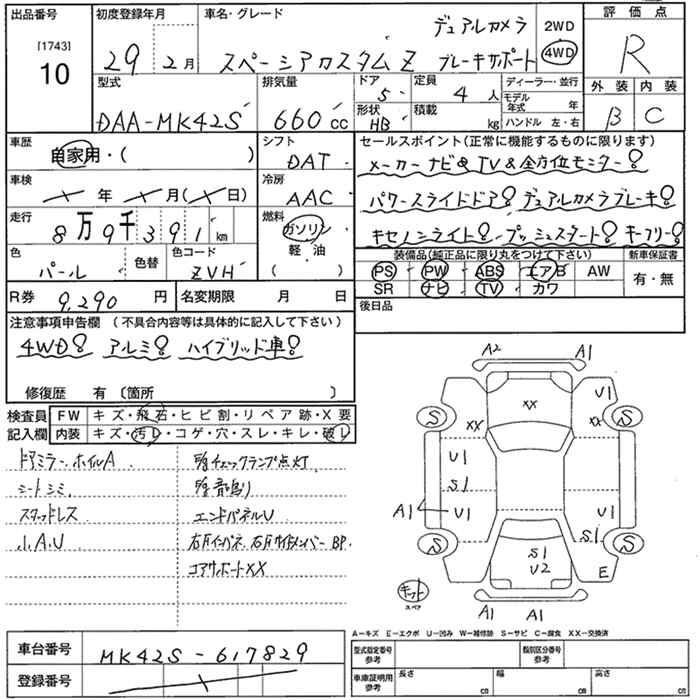 出品番号 初度登録年月 車名・グレード 評価点
[1743]
10
29 2月 スペーシアカスタムZ デュアルカメラ ブレーキサポート 2WD 4WD R
型式 排気量 ドア 定員 ディーラー・並行 外装 内装
DAA-MK42S 660cc 5 4人 モデル年式 年 B C
形状 積載
HB kg ハンドル 左・右
車歴 シフト セールスポイント(正常に機能するものに限ります)
自家用・( ) DAT メーカーナビ&TV&全方位モニター!
車検 冷房
年 月( 日) AAC パワースライドドア! デュアルカメラブレーキ!
走行 燃料
8万9千391km ガソリン キセノンライト! プッシュスタート! キーフリー!
軽・油
( )
色 色替 色コード 装備品(純正品に限り丸をつけて下さい) 新車保証書
パール ZVH PS PW ABS エアB AW 有・無
SR ナビ TV カワ
R券 9,290円 名変期限 月 日 後日品
注意事項申告欄 (不具合内容等は具体的に記入して下さい)
4WD! アルミ! ハイブリッド車!
修復歴 有 〔箇所 〕
検査員 FW キズ・飛石・ヒビ割・リペア跡・X要
記入欄 内装 キズ・汚レ・コゲ・穴・スレ・キレ・破レ
ドアミラー、ホイルA
チェックランプ点灯
シートシミ
音鳴り
スタッドレス
エンドパネルU
小A、U
BP
コアサポートXX
A2 A1
XX
U1
S XX XX S
U1
S1
A1 U1 U1
S S1 S
S1
U2
E
キット
スペア
A1 A1
A-キズ E-エクボ U-凹み W-補修跡 S-サビ C-腐食 XX-交換済
車台番号 MK42S-617829
登録番号
型式指定番号 参考 類別区分番号
車庫証明用 参考 長さ cm 幅 cm 高さ cm